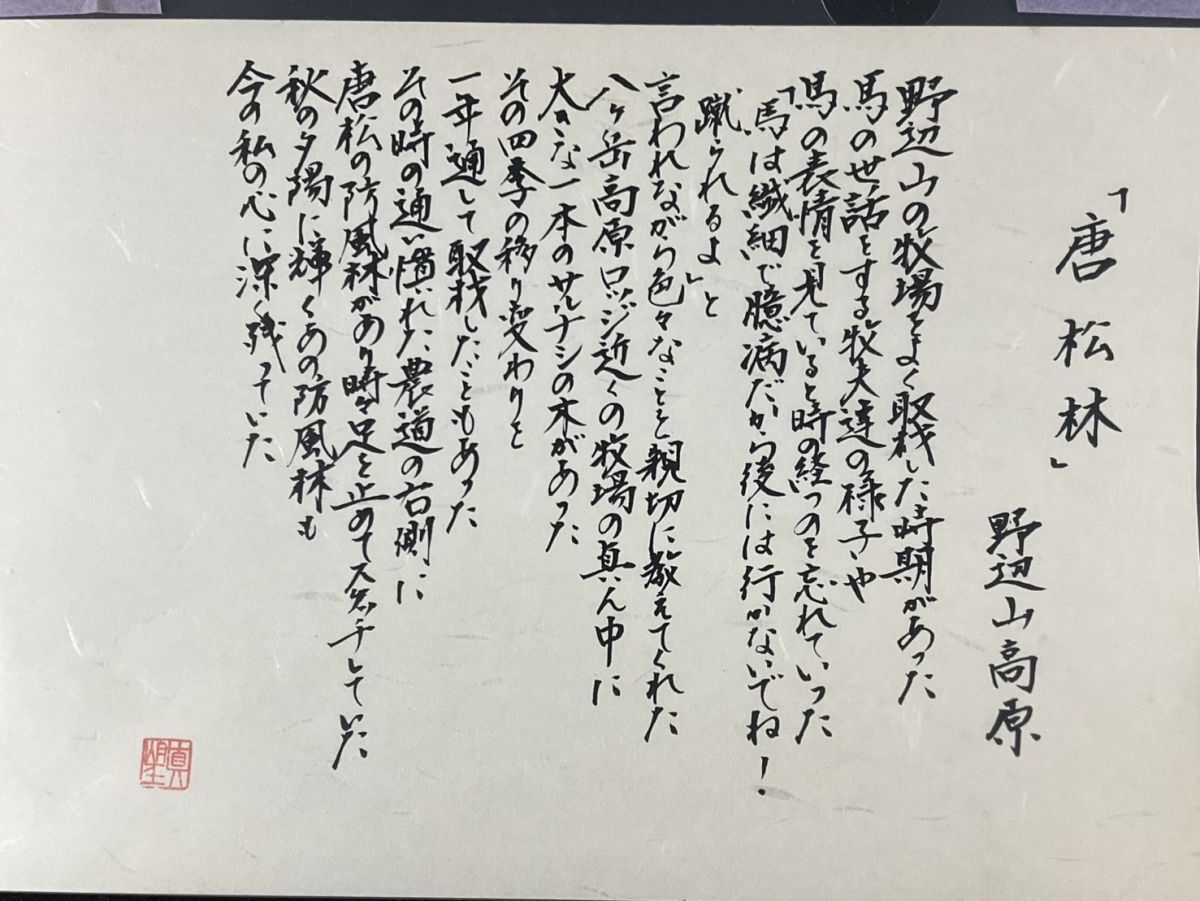 「唐松林」
野辺山高原
野辺山の牧場をよく取材した時期があった
馬の世話をする牧夫達の様子や
馬の表情を見ていると時の経つのを忘れていった
「馬は繊細で臆病だから後には行かないでね！
蹴られるよ」と
言われながら色々なことを親切に教えてくれた
八ヶ岳高原ロッジ近くの牧場の真ん中に
大きな一本のサルナシの木があった
その四季の移り変わりを
一年通して取材したこともあった
その時の通い慣れた農道の右側に
唐松の防風林があり時々足を止めてスケッチしていた
秋の夕陽に輝くあの防風林も
今の私の心に深く残っていた